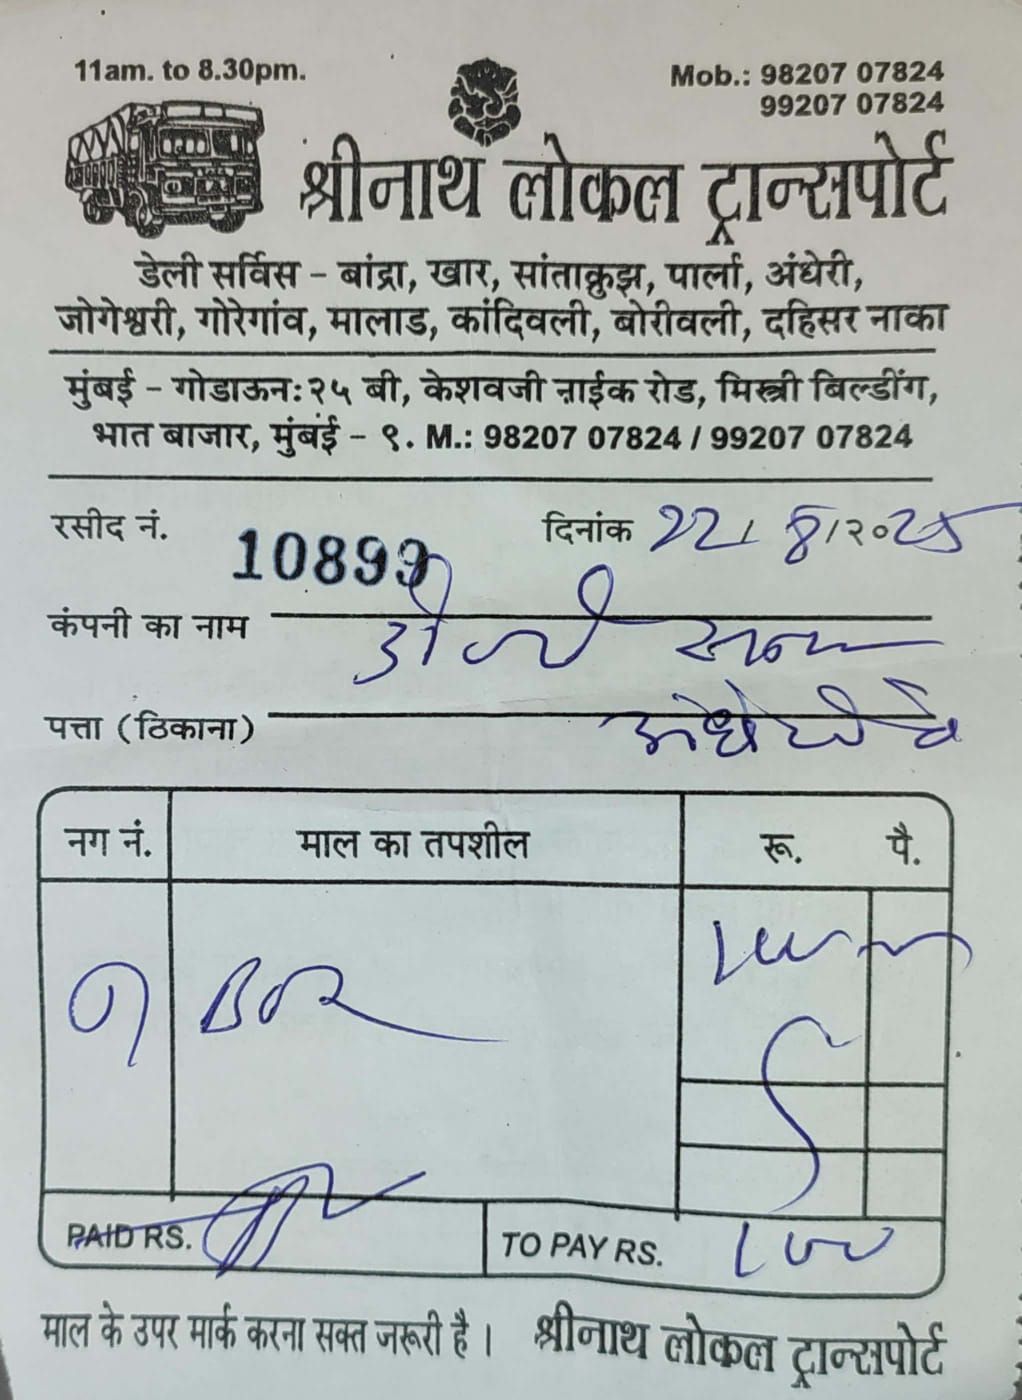 11am. to 8.30pm.
Mob.: 98207 07824
99207 07824
श्रीनाथ लोकल ट्रान्सपोर्ट
डेली सर्विस – बांद्रा, खार, सांताक्रुझ, पार्ला, अंधेरी,
जोगेश्वरी, गोरेगांव, मालाड, कांदिवली, बोरीवली, दहिसर नाका
मुंबई – गोडाऊन: २५ बी, केशवजी नाईक रोड, मिस्त्री बिल्डींग,
भात बाजार, मुंबई – ९. M.: 98207 07824 / 99207 07824
रसीद नं. 10899 दिनांक 22/8/२०25
कंपनी का नाम
पत्ता (ठिकाना)
नग नं. माल का तपशील रू. पै.
१ BOX 100
PAID RS. TO PAY RS. 100
माल के उपर मार्क करना सक्त जरूरी है। श्रीनाथ लोकल ट्रान्सपोर्ट